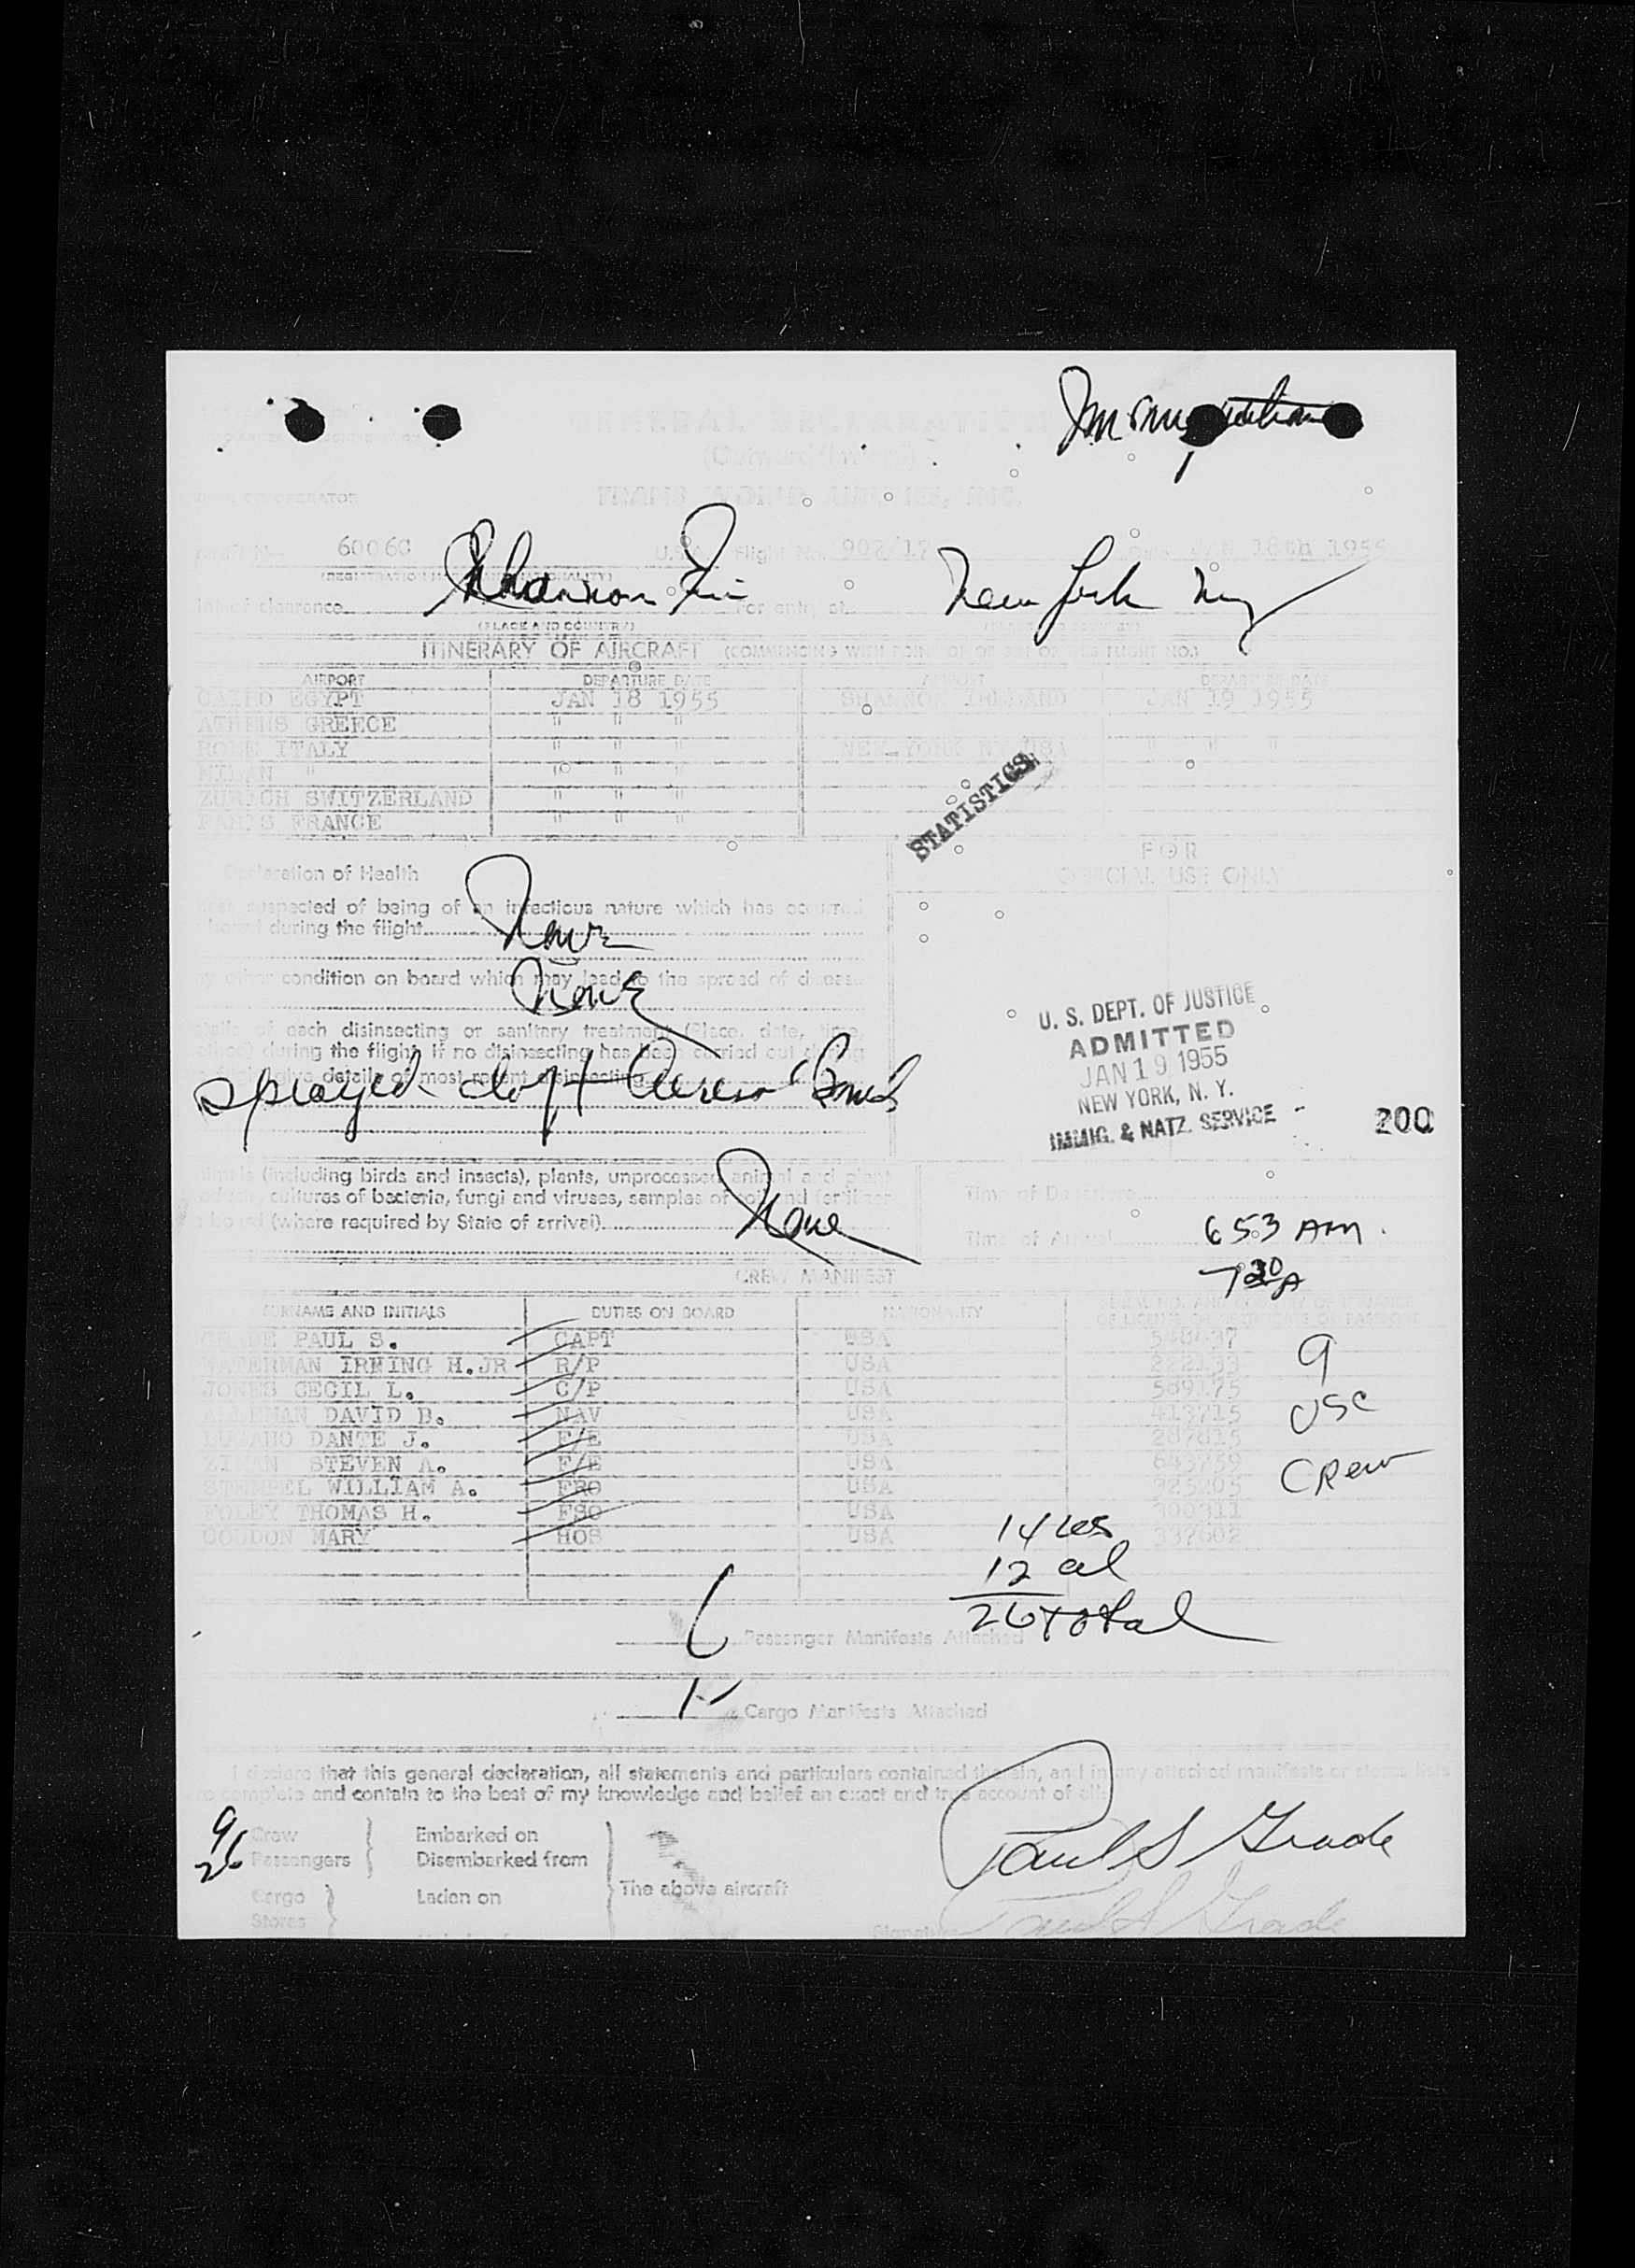 Immigration
GENERAL DECLARATION
(Outward/Inward)
OPERATOR
TRANS WORLD AIRLINES, INC.
6006C U.S.A. Flight No. 902/17 18th 1955
clearance Shannon Eire For entry at New York NY
(PLACE AND COUNTRY)
ITINERARY OF AIRCRAFT (COMMENCING WITH
AIRPORT DEPARTURE DATE AIRPORT DEPARTURE DATE
CAIRO EGYPT JAN 18 1955 SHANNON IRELAND JAN 19 1955
ATHENS GREECE " " "
ROME ITALY " " " NEW YORK NY USA " " "
MILAN " " " "
ZURICH SWITZERLAND " " "
PARIS FRANCE " " "
STATISTICS
Declaration of Health
FOR
OFFICIAL USE ONLY
suspected of being of an infectious nature which has occurred
during the flight None
other condition on board which may lead to the spread of disease
None
of each disinsecting or sanitary treatment (Place, date, time,
during the flight. If no disinsecting has been carried out during
give details of most recent disinsecting
sprayed aloft Aerosol Bomb
U. S. DEPT. OF JUSTICE
ADMITTED
JAN 19 1955
NEW YORK, N. Y.
IMMIG. & NATZ. SERVICE
200
(including birds and insects), plants, unprocessed animal and plant
cultures of bacteria, fungi and viruses, samples of soil and
board (where required by State of arrival) None
Time of Departure
Time of Arrival 653 AM.
730 A
CREW MANIFEST
SURNAME AND INITIALS DUTIES ON BOARD NATIONALITY
GRADE PAUL S. CAPT USA
WATERMAN IRWING H.JR R/P USA
JONES CECIL L. C/P USA 589175
DAVID B. NAV USA 413715
DANTE J. F/E USA
STEVEN A. F/E USA 643759
WILLIAM A. FRO USA 925205
FOLEY THOMAS H. FSO USA 300311
GOUDON MARY HOS USA 337602
9
USC
Crew
14 ces
12 al
26 total
Passenger Manifests Attached
Cargo Manifests Attached
I declare that this general declaration, all statements and particulars contained therein, and in any attached manifests or stores lists
are complete and contain to the best of my knowledge and belief an exact and true account of all
9 Crew
26 Passengers
Embarked on
Disembarked from
Cargo
Stores
Laden on
The above aircraft
Paul S Grade
Signature Paul S Grade